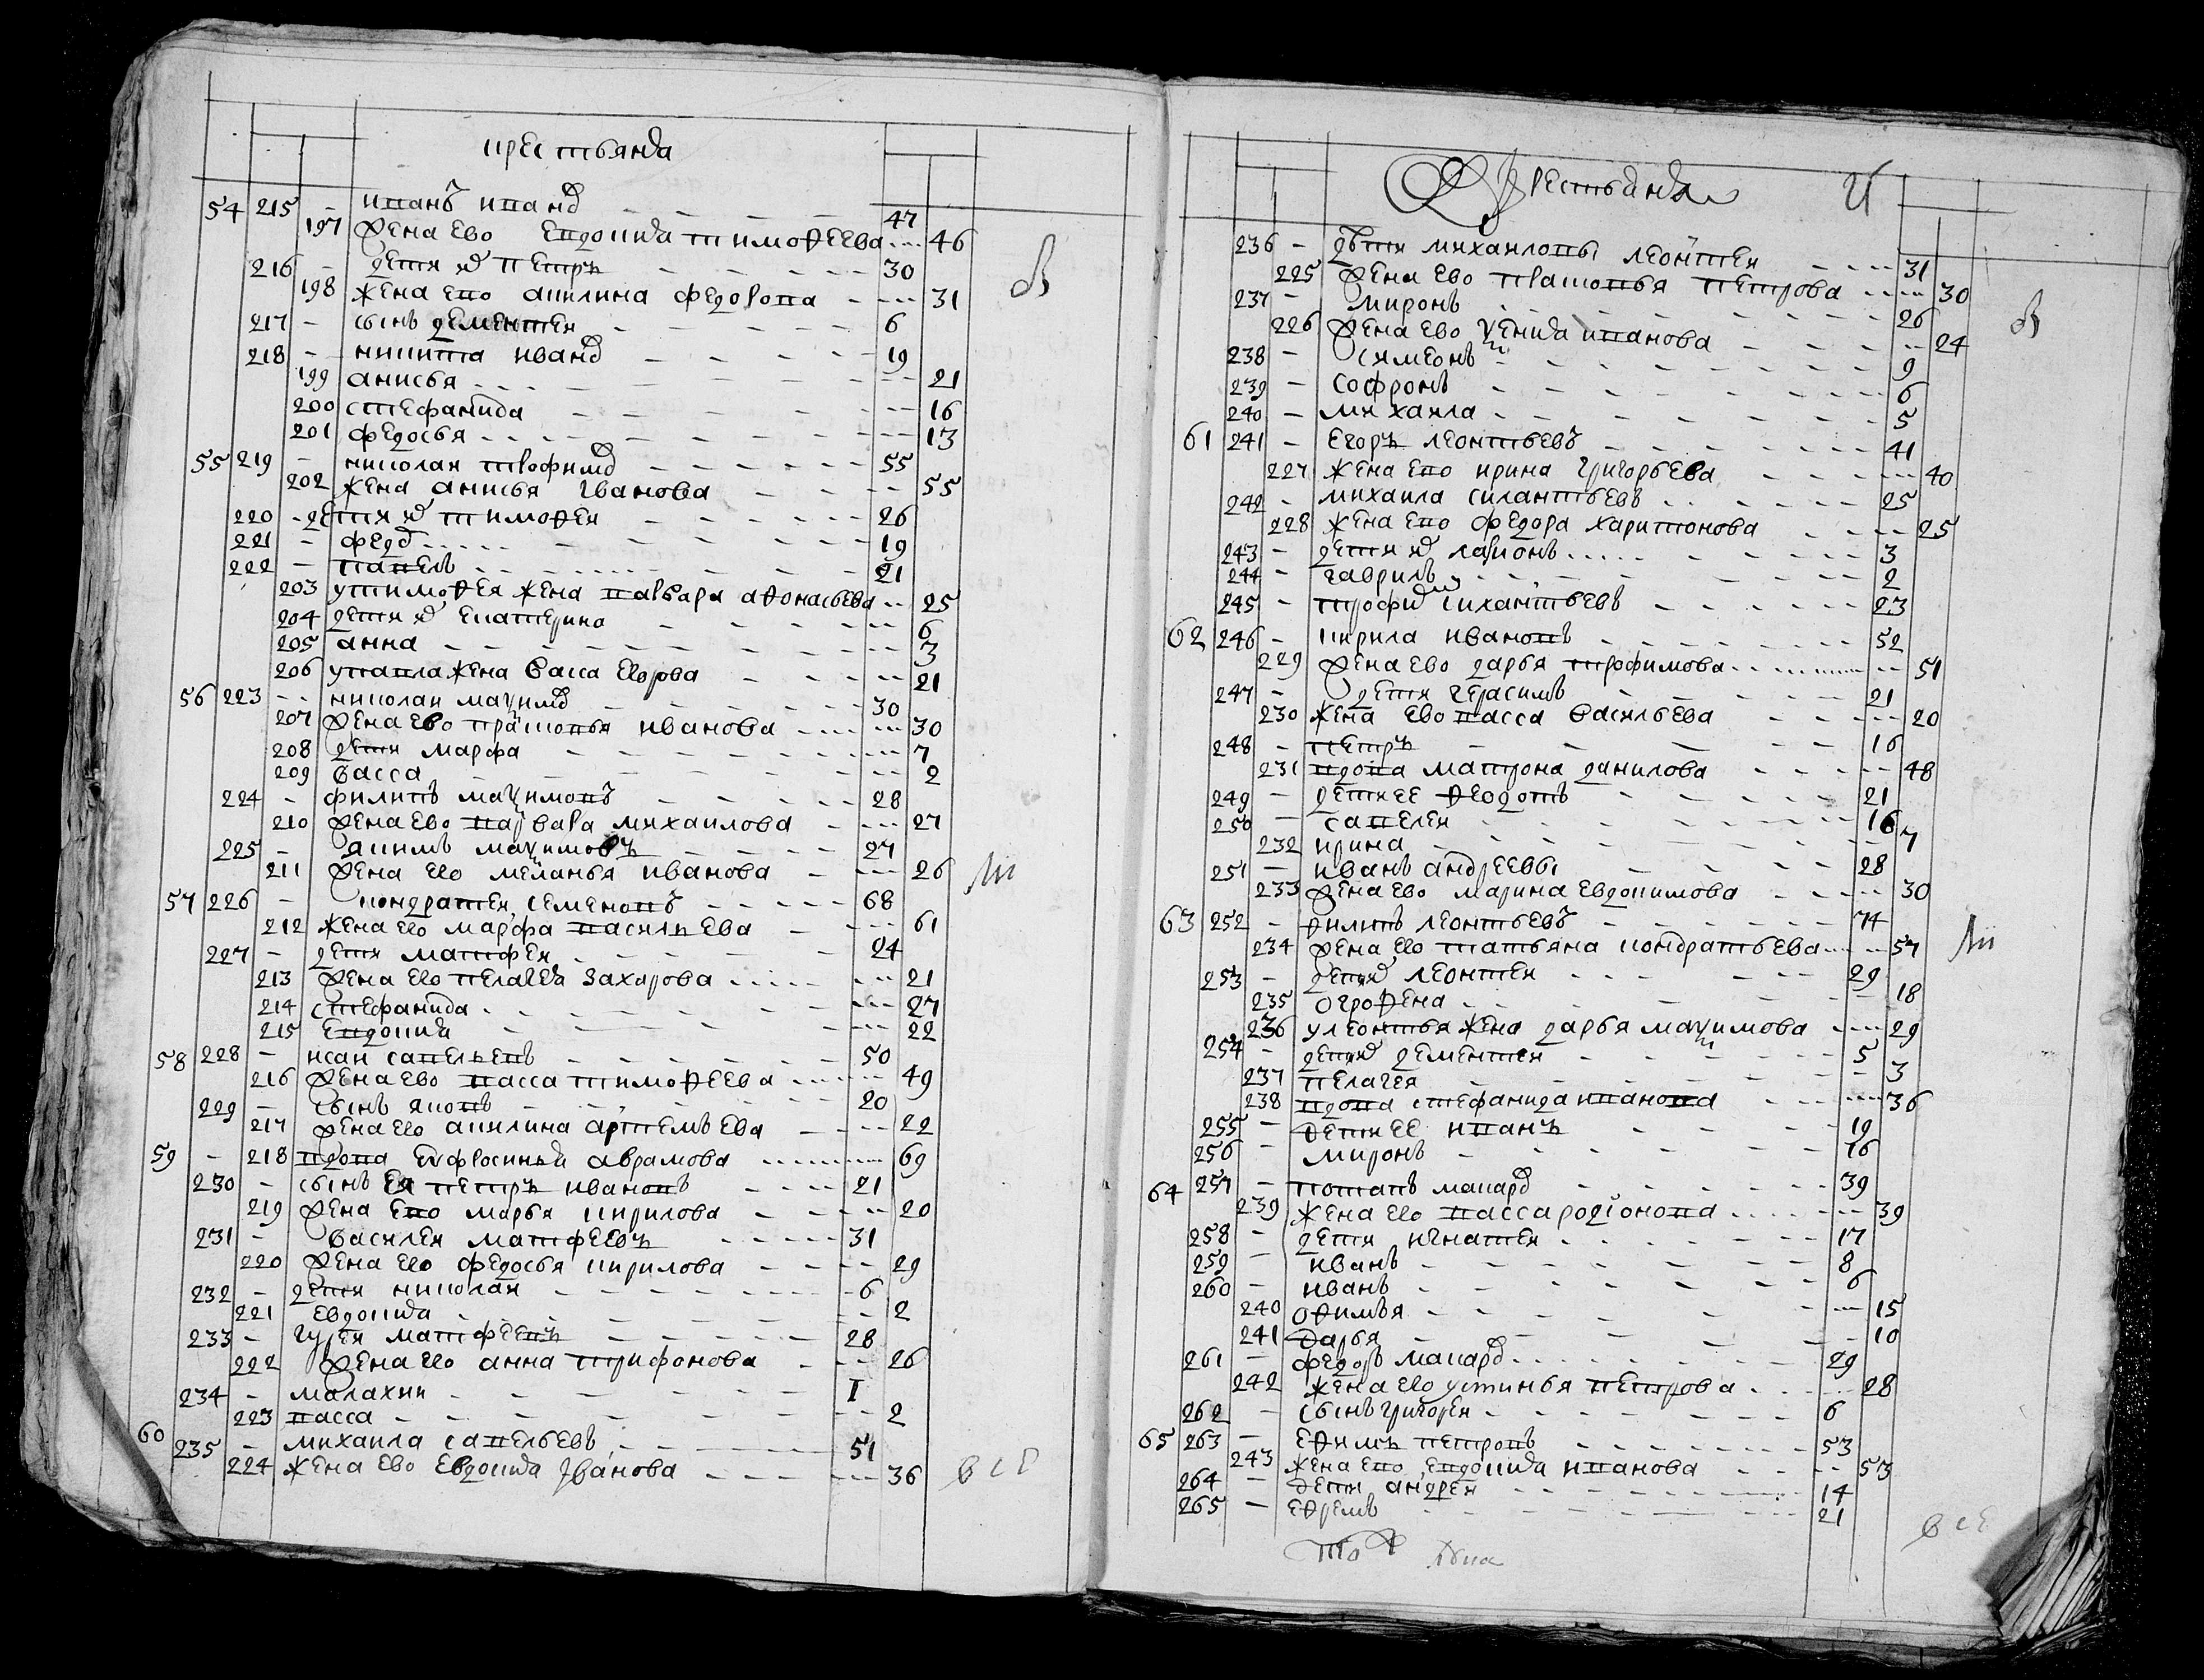 крестьяня
54 215 - иванъ иванов - - - 47
197 жена ево евдокида тимофеева - - - 46
216 - дети их петръ - - - 30
198 жена ево акилина федорова - - - 31
217 - сынъ дементеи - - - 6
218 - никита иванов - - - 19
199 анисья - - - 21
200 стефанида - - - 16
201 федосья - - - 13
55 219 - николаи трофимов - - - 55
202 жена анисья иванова - - - 55
220 - дети их тимофеи - - - 26
221 - федор - - - 19
222 - павелъ - - - 21
203 у тимофея жена варвара афонасьева - - 25
204 дети их екатерина - - - 6
205 анна - - - 3
206 у павла жена васса егорова - - - 21
56 223 - - николаи максимов - - - 30
207 жена ево прасковья иванова - - - 30
208 дети марфа - - - 7
209 васса - - - 2
224 - филипъ максимовъ - - - 28
210 жена ево варвара михаилова - - - 27
225 - якимъ максимовъ - - - 27
211 жена ево меланья иванова - - - 26
57 226 - кондратеи семеновъ - - - 68
212 жена его марфа васильева - - - 61
227 - дети матфеи - - - 24
213 жена его пелагея захарова - - - 21
214 стефанида - - - 27
215 евдокида - - - 22
58 228 - исаи савельевъ - - - 50
216 жена ево васса тимофеева - - - 49
229 - сынъ яковъ - - - 20
217 жена его акилина артемьева - - - 22
59 - 218 вдова евфросинья аврамова - - - 69
230 - сынъ ея петръ ивановъ - - - 21
219 жена ево марья кирилова - - - 20
231 - василеи матфеевъ - - - 31
220 жена его федосья кирилова - - - 29
232 - дети николаи - - - 6
221 евдокида - - - 2
233 - гуреи матфеевъ - - - 28
222 жена его анна трифонова - - - 26
234 - малахии - - - 1
223 васса - - - 2
60 235 - михаила савельевъ - - - 51
224 жена ево евдокида иванова - - - 36
все
Крестьяня
236 - дѣти михаиловы леонтеи - - - 31
225 жена ево прасковья петрова - - - 30
237 - миронъ - - - 26
226 жена ево ксения иванова - - - 24
238 - симеонъ - - - 9
239 - софронъ - - - 6
240 - михаила - - - 5
61 241 - егоръ леонтьевъ - - - 41
227 жена ево ирина григорьева - - - 40
242 - михаила силантьевъ - - - 25
228 жена ево федора харитонова - - - 25
243 - дети их ларионъ - - - 3
244 - гаврилъ - - - 2
245 - трофим силантьевъ - - - 23
62 246 - кирила ивановъ - - - 52
229 жена ево дарья трофимова - - - 51
247 - дети герасимъ - - - 21
230 жена ево васса васильева - - - 20
248 - петръ - - - 16
231 вдова матрона данилова - - - 48
249 - дети ее феодотъ - - - 21
250 - савелеи - - - 16
232 ирина - - - 7
251 - иванъ андреевы - - - 28
233 жена ево марина евдокимова - - - 30
63 252 - филипъ леонтьевъ - - - 74
234 жена его татьяна кондратьева - - - 57
253 - дети их леонтеи - - - 29
235 огрофена - - - 18
236 у леонтья жена дарья максимова - - - 29
254 - дети их дементеи - - - 5
237 пелагея - - - 3
238 вдова стефанида иванова - - - 36
255 - дети ее иванъ - - - 19
256 - миронъ - - - 16
64 257 - потапъ макаров - - - 39
239 жена его васса родионова - - - 39
258 - дети игнатеи - - - 17
259 - иванъ - - - 8
260 - иванъ - - - 6
240 офимья - - - 15
241 дарья - - - 10
261 - федоръ макаров - - - 29
242 жена его устинья петрова - - - 28
262 - сынъ григореи - - - 6
65 263 - ефимъ петровъ - - - 53
243 жена ево евдокида иванова - - - 53
264 - дети андреи - - - 14
265 - ефремъ - - - 21
все